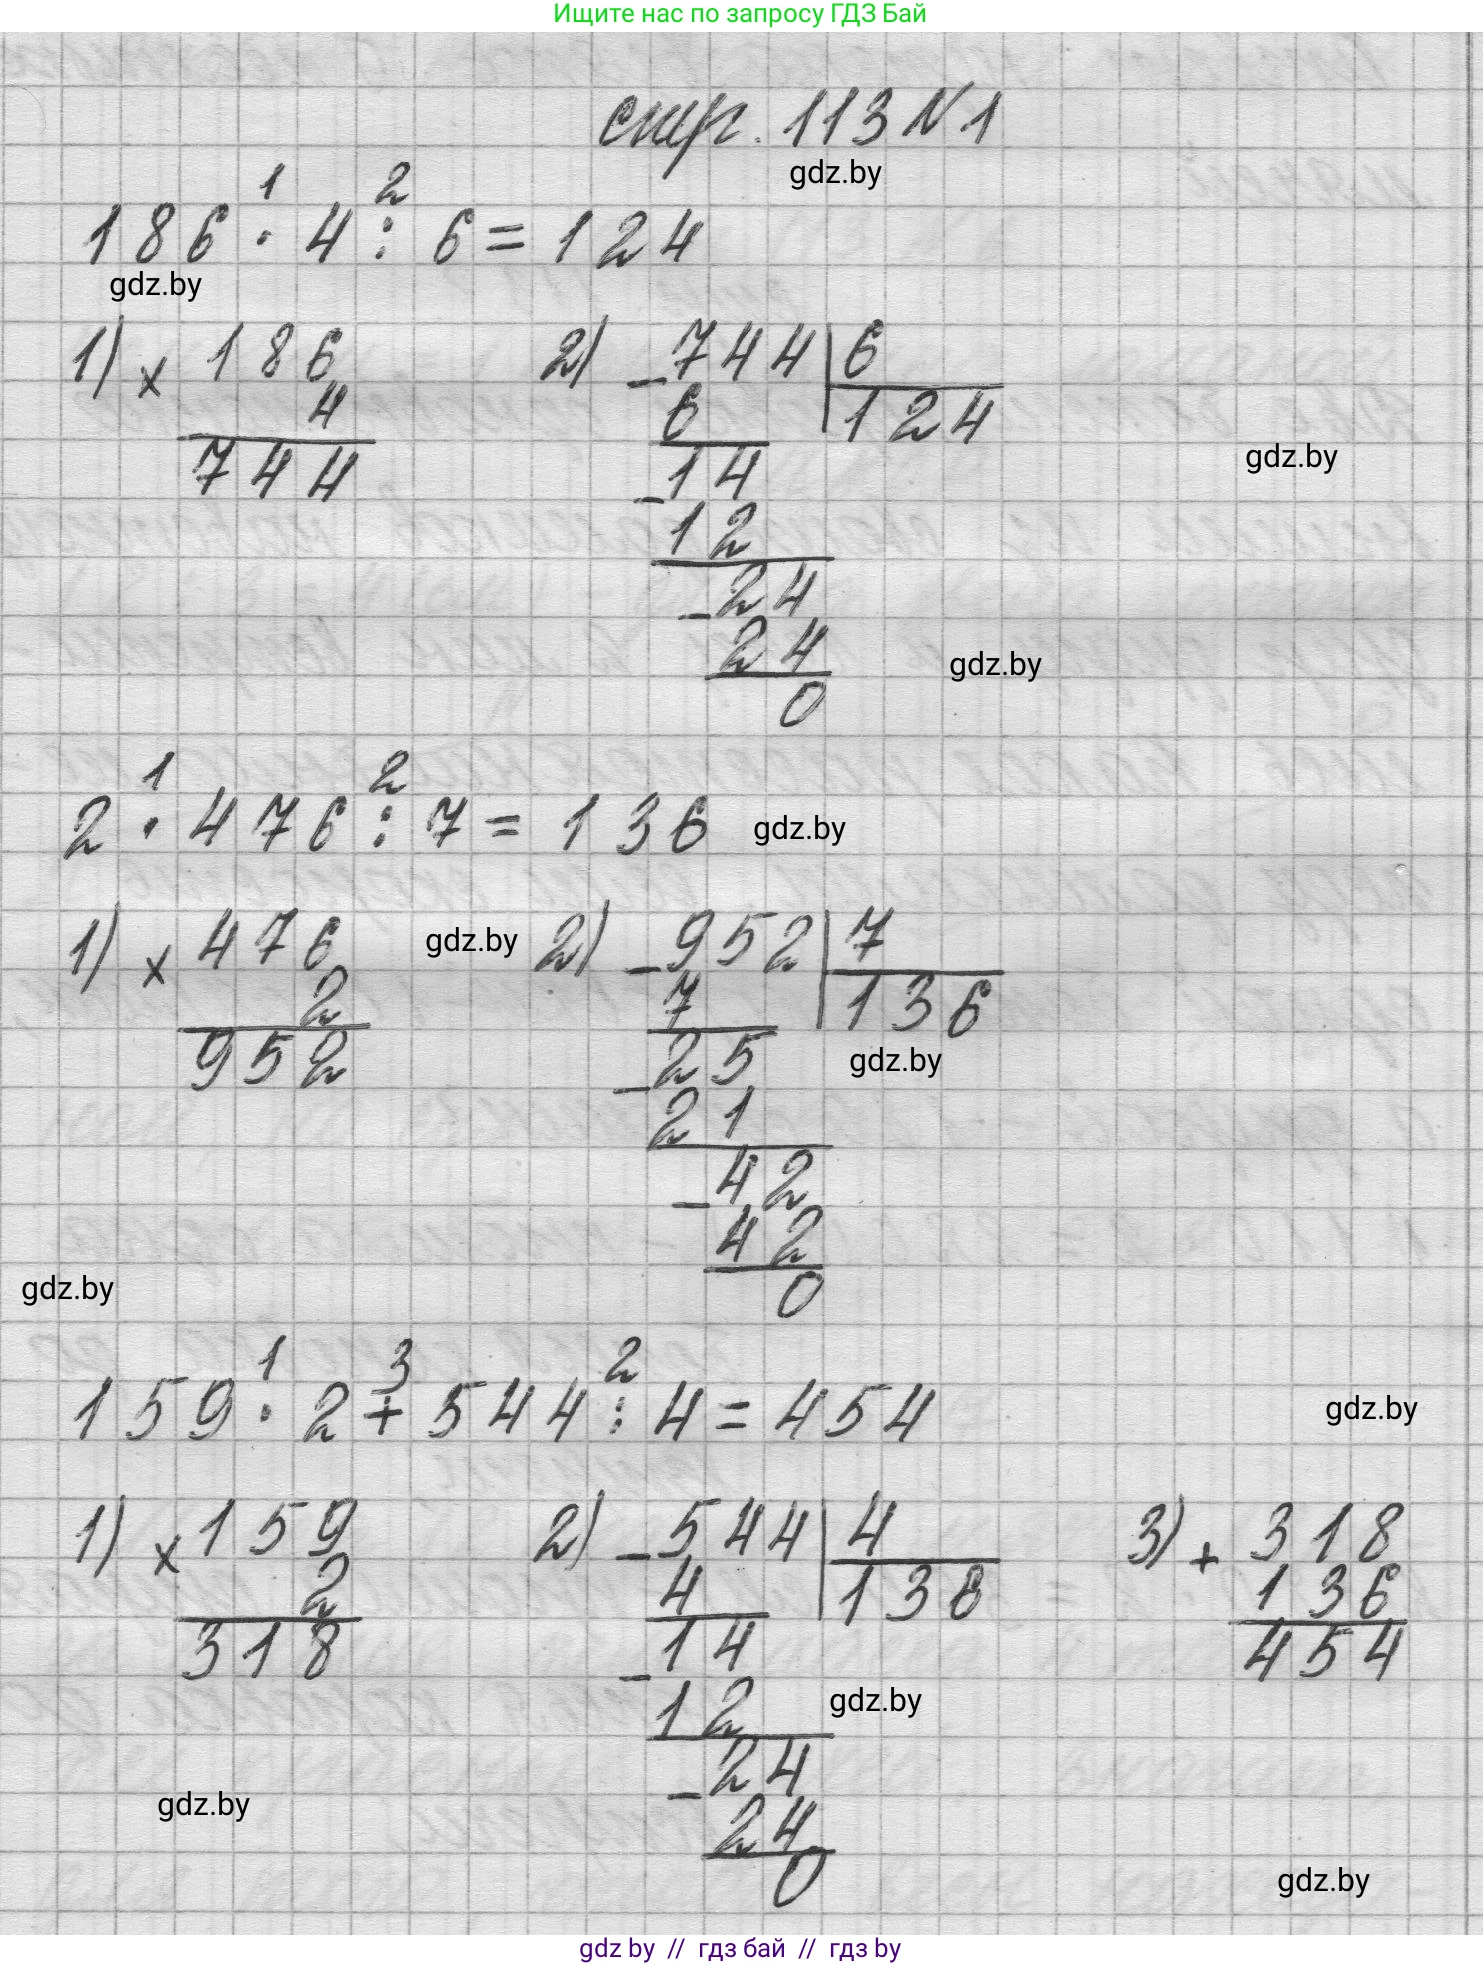 Ищите нас по запросу ГДЗ Бай
стр. 113 N 1
gdz.by
1 2
186 · 4 : 6 = 124
gdz.by
1) × 186
4
744
2) - 744 | 6
6 124
gdz.by
- 14
12
- 24
24
gdz.by
0
1 2
2 · 476 : 7 = 136
gdz.by
1) × 476
2
952
gdz.by
2) - 952 | 7
7 136
gdz.by
- 25
21
- 42
42
0
gdz.by
1 3 2
159 · 2 + 544 : 4 = 454
gdz.by
1) × 159
2
318
2) - 544 | 4
4 136
- 14
12
gdz.by
- 24
24
0
3) + 318
136
454
gdz.by
gdz.by
gdz by // гдз бай // гдз by